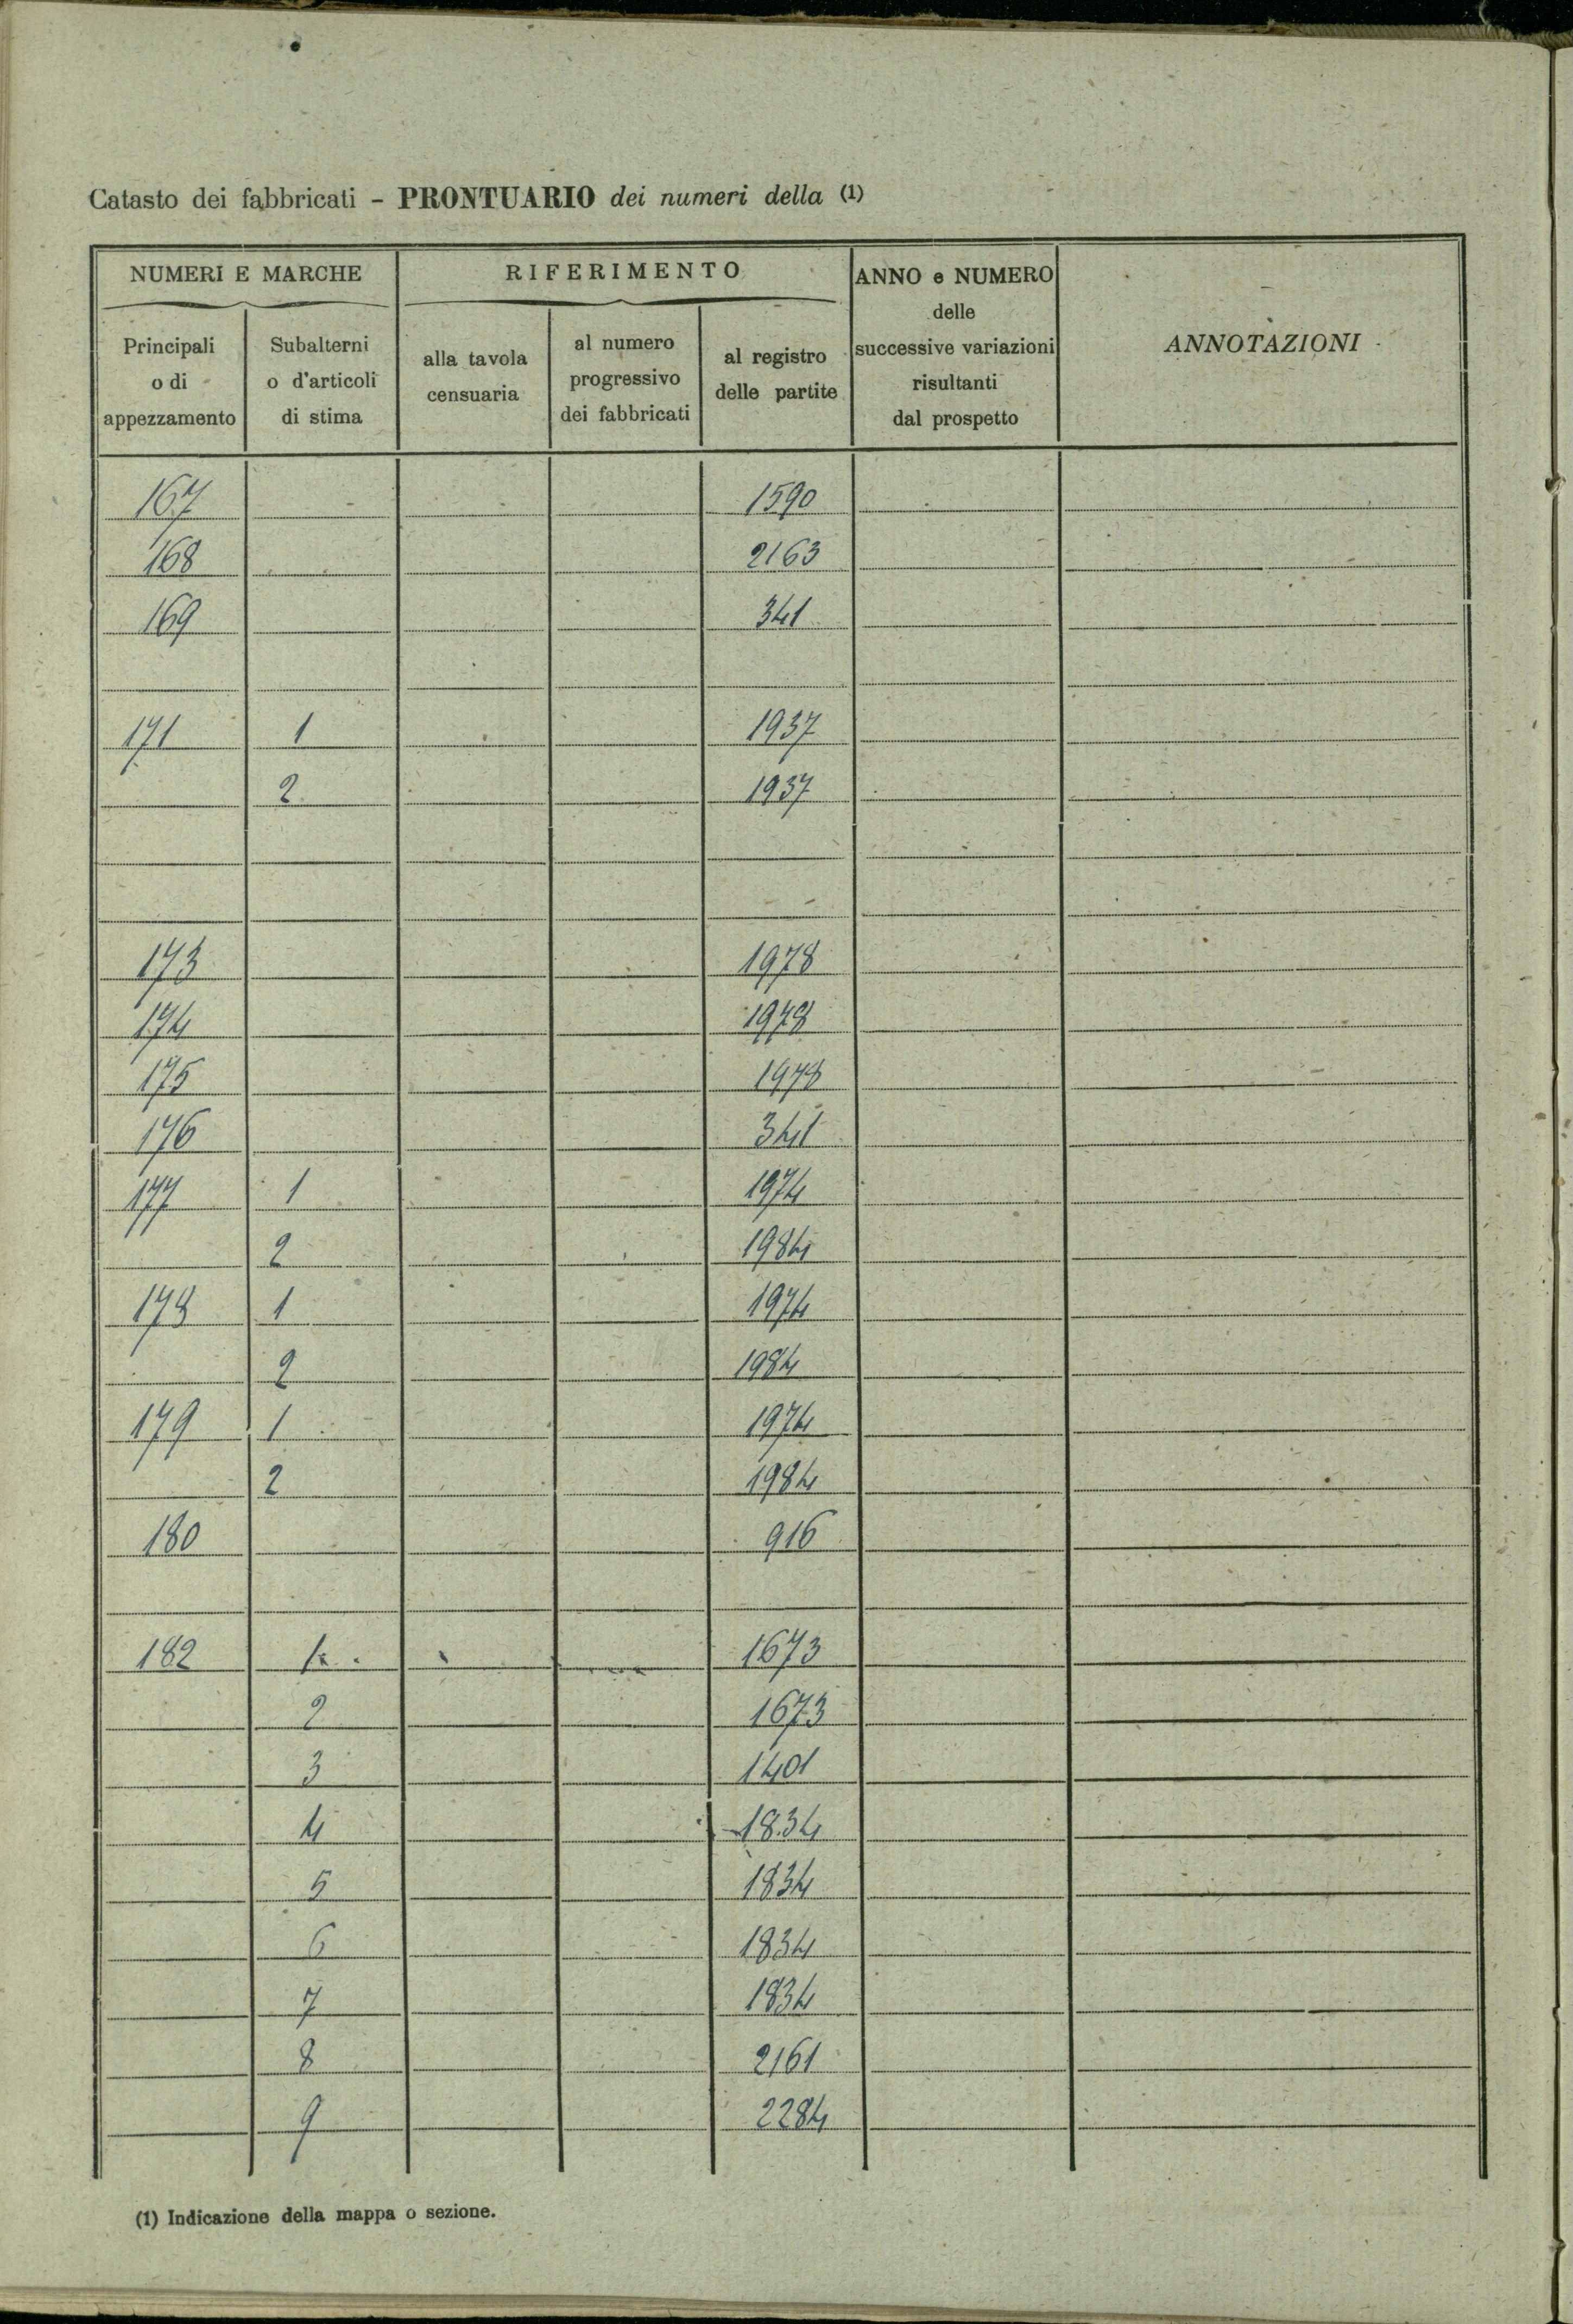 Catasto dei fabbricati - PRONTUARIO dei numeri della (1)
NUMERI E MARCHE
RIFERIMENTO
ANNO e NUMERO
delle
successive variazioni
risultanti
dal prospetto
ANNOTAZIONI
Principali
o di
appezzamento
Subalterni
o d'articoli
di stima
alla tavola
censuaria
al numero
progressivo
dei fabbricati
al registro
delle partite
167 1590
168 2163
169 341
171 1 1937
2 1937
173 1978
174 1978
175 1978
176 341
177 1 1974
2 1984
178 1 1974
2 1984
179 1 1974
2 1984
180 916
182 1 1673
2 1673
3 1401
4 1834
5 1834
6 1834
7 1834
8 2161
9 2284
(1) Indicazione della mappa o sezione.